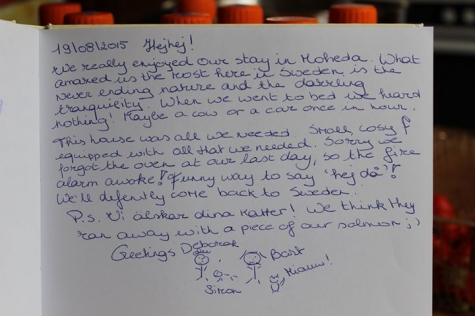 19/08/2015 Hejhej!
We really enjoyed our stay in Moheda. What
amazed us the most here in Sweden is the
never ending nature and the dazzling
tranquility. When we went to bed we heard
nothing! Maybe a cow or a car once in hour.
This house was all we needed Small, cosy &
equipped with all that we needed. Sorry we
forgot the oven at our last day, so the fire
alarm awoke! Funny way to say 'hej då'!
We'll defently come back to Sweden.
P.s. Vi älskar dina katter! We think they
ran away with a piece of our salmon ;)
Greetings Deborah
Bart
Simon
Miauw!